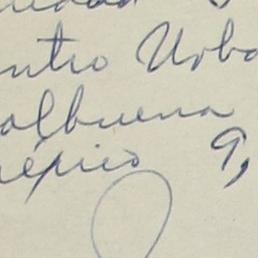 entro Urba
albuena
México 9,